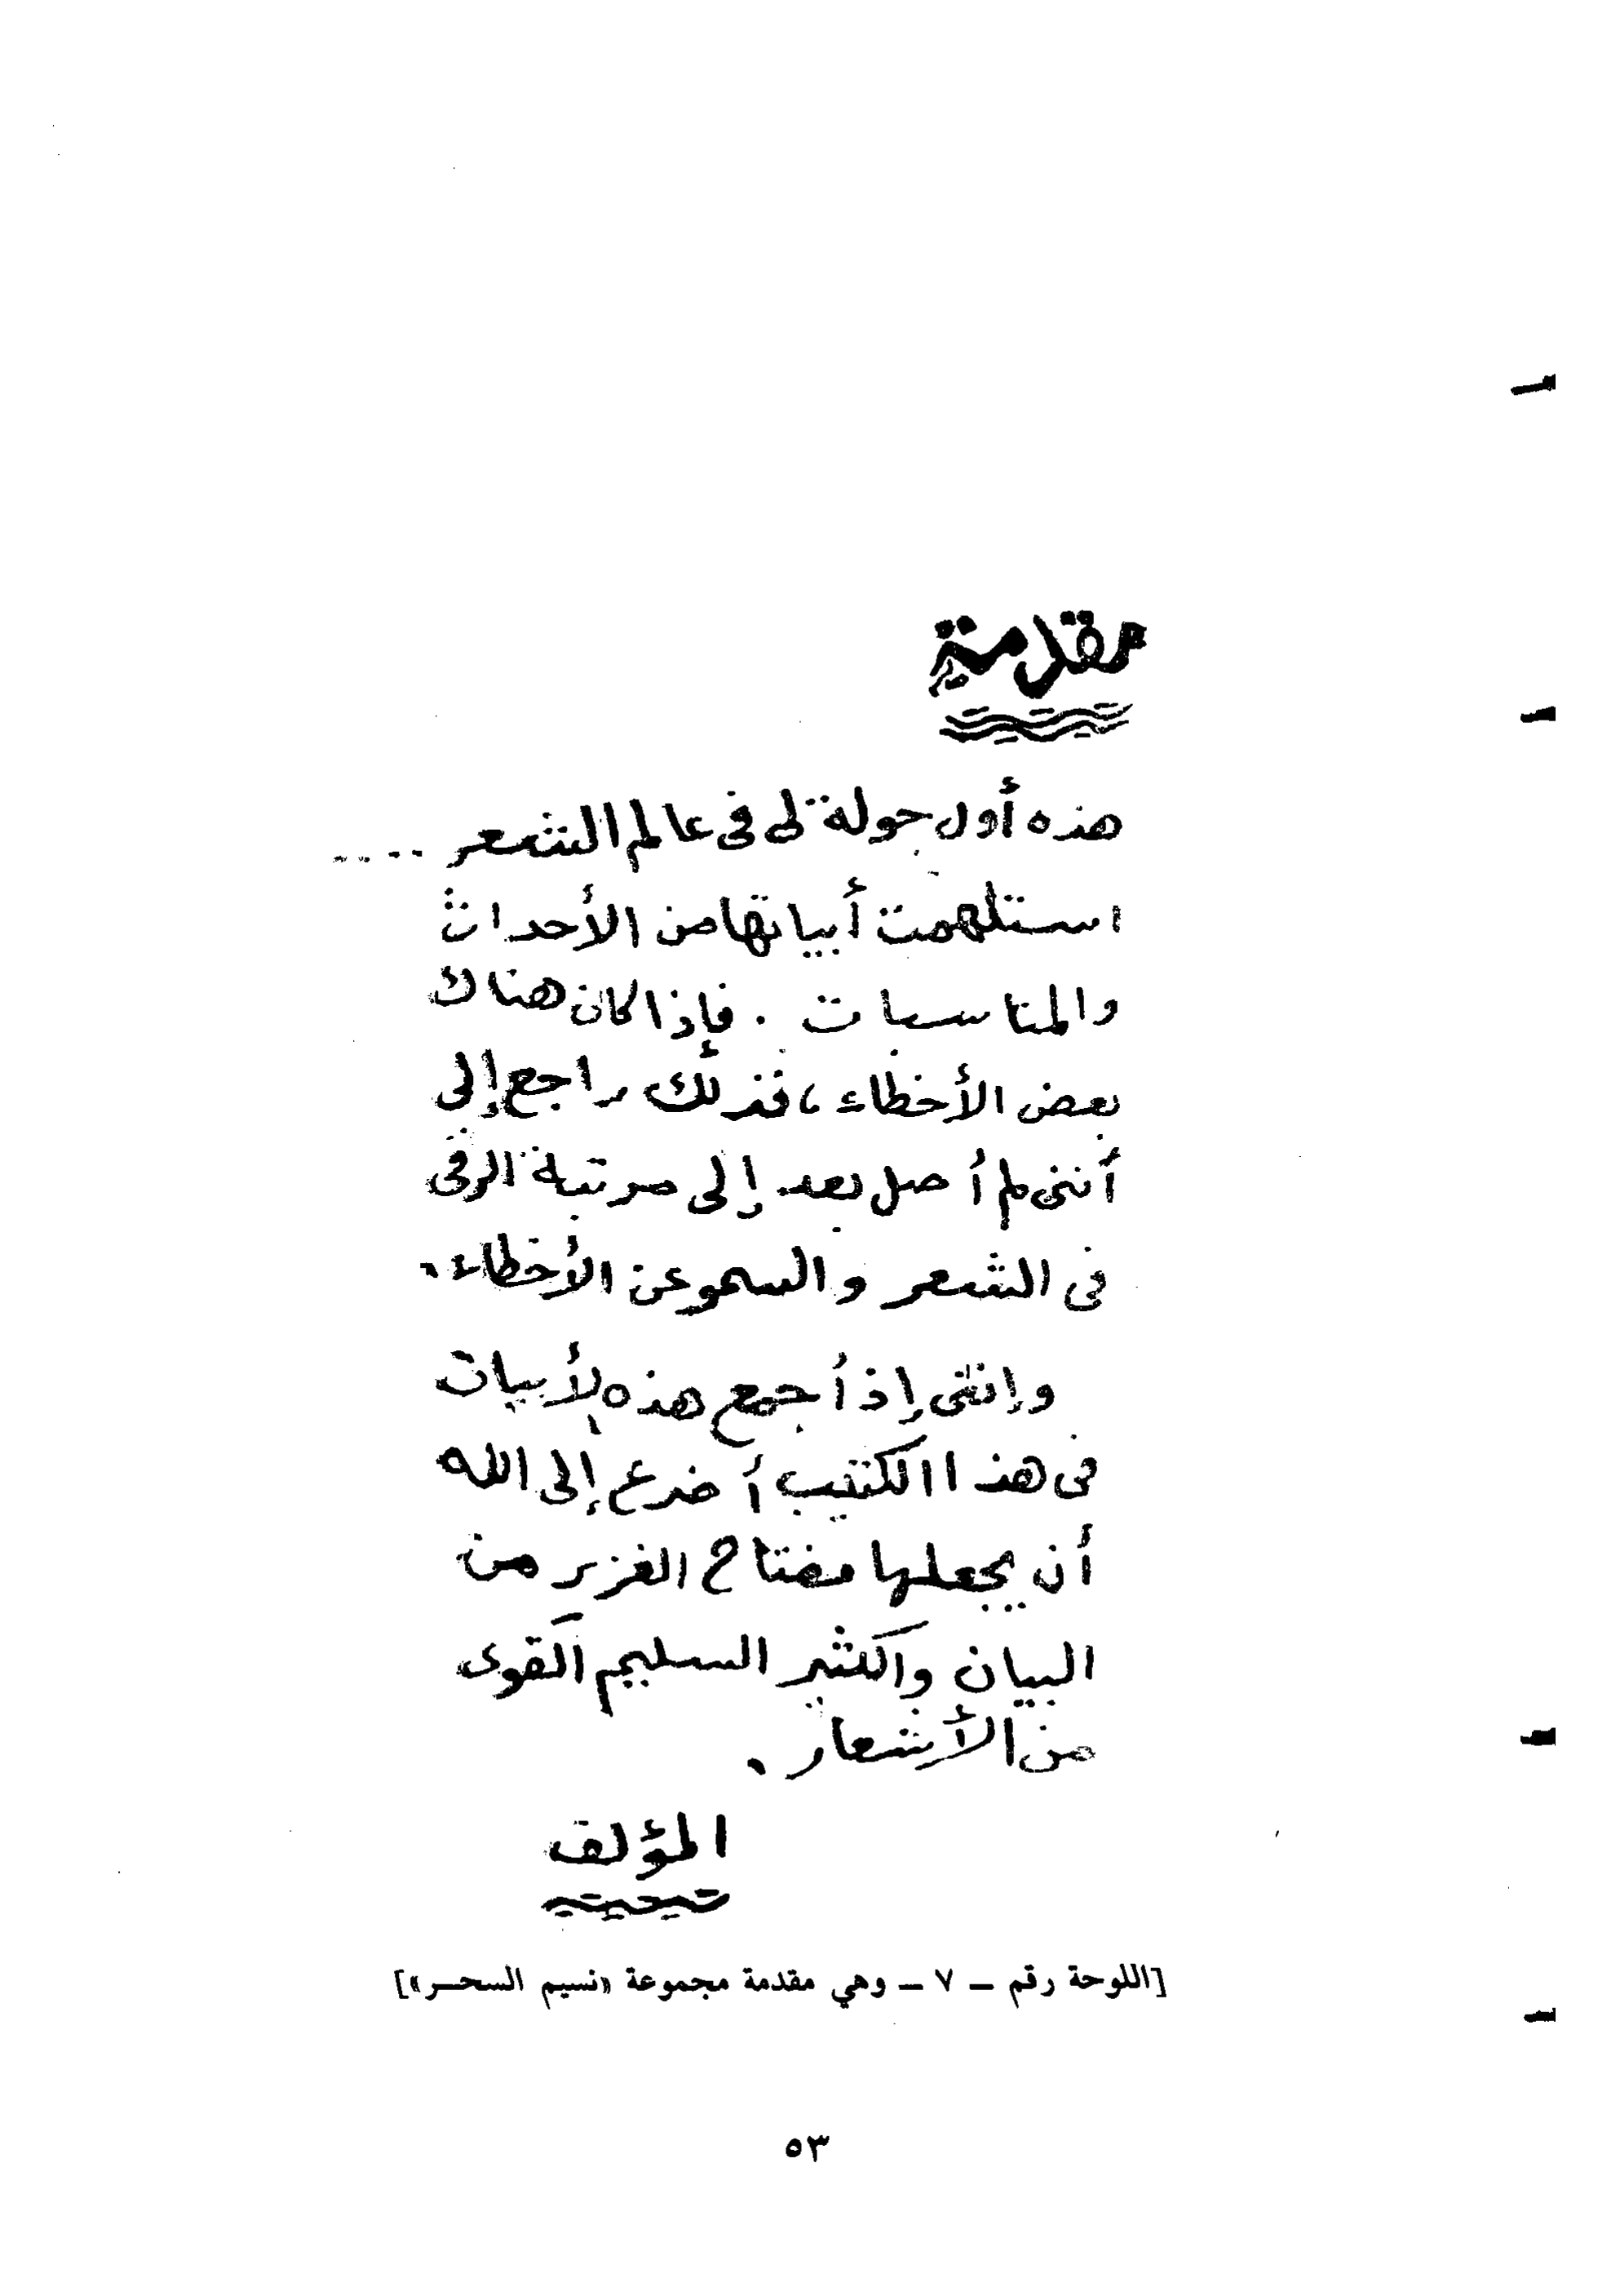 مقدمة
هذه أول جولة لى فى عالم الشعر ....
استلهمت أبياتها من الأحداث
والمناسبات . فإذا كان هناك
بعض الأخطاء، فذلك راجع إلى
أننى لم أصل بعد إلى مرتبة الرقى
فى الشعر والسمو عن الأخطاء.
وإننى إذ أجمع هذه الأبيات
فى هذا الكتيب أضرع إلى الله
أن يجعلها مفتاح الغزير من
البيان والكثير السليم القوى
من الأشعار .
المؤلف
[اللوحة رقم – ٧ – وهي مقدمة مجموعة «نسيم السحر»]
٥٣